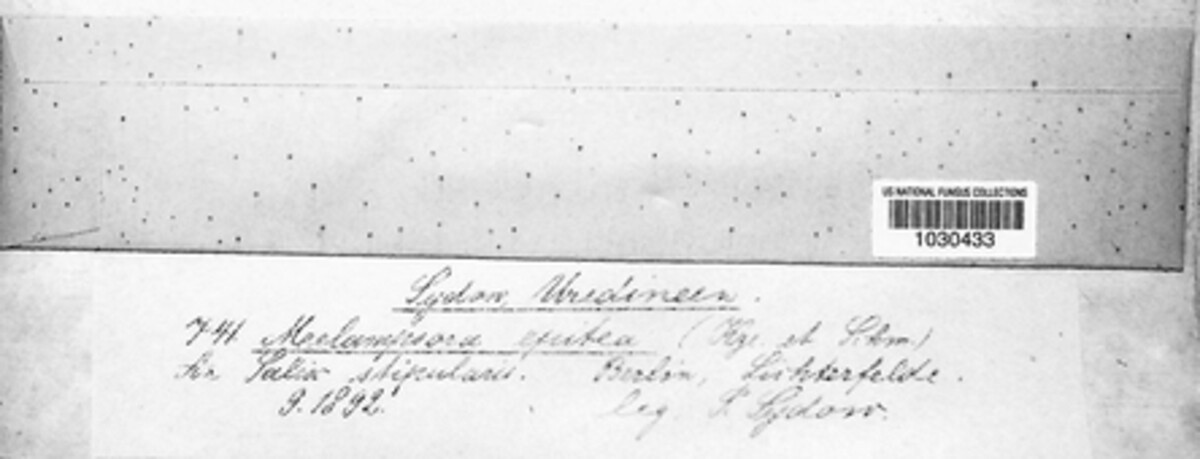 US NATIONAL FUNGUS COLLECTIONS
1030433
Sydow, Uredineen.
741 Melampsora epitea (Kze. et Schm.)
An Salix stipularis. Berlin, Lichterfelde.
9. 1892. leg. P. Sydow.